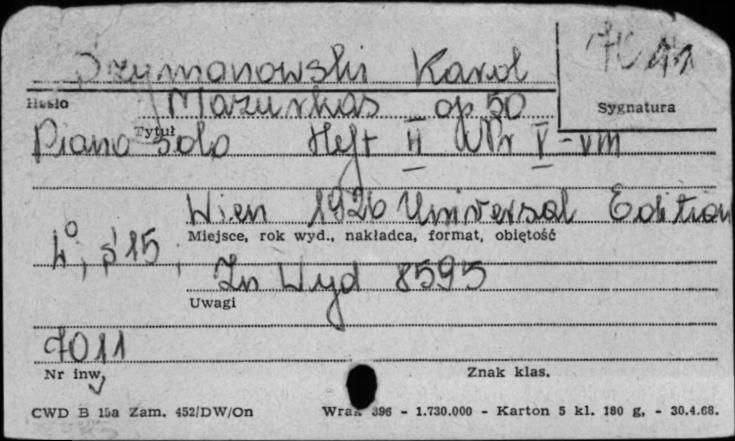 Szymanowski Karol
7011
Hasło
Sygnatura
Mazurkas op 50
Tytuł
Piano solo Heft II Nr V-VIII
Wien 1926 Universal Edition
Miejsce, rok wyd., nakładca, format, objętość
4°, s 15,
Zn Wyd 8595
Uwagi
7011
Nr inw. Znak klas.
CWD B 15a Zam. 452/DW/On Wrzx 396 - 1.730.000 - Karton 5 kl. 180 g, - 30.4.68.